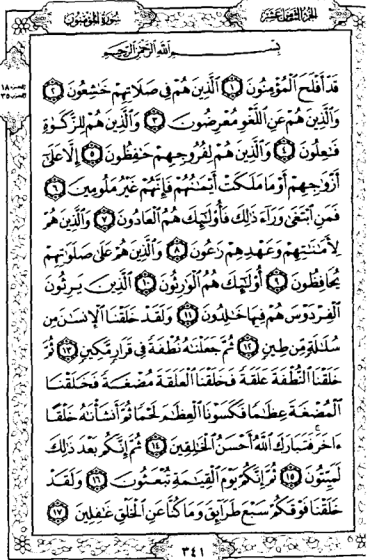 الجزء الثامن عشر
سورة المؤمنون
بِسْمِ اللَّهِ الرَّحْمَٰنِ الرَّحِيمِ
قَدْ أَفْلَحَ الْمُؤْمِنُونَ ١ الَّذِينَ هُمْ فِي صَلَاتِهِمْ خَٰشِعُونَ ٢
وَالَّذِينَ هُمْ عَنِ اللَّغْوِ مُعْرِضُونَ ٣ وَالَّذِينَ هُمْ لِلزَّكَوٰةِ
فَٰعِلُونَ ٤ وَالَّذِينَ هُمْ لِفُرُوجِهِمْ حَٰفِظُونَ ٥ إِلَّا عَلَىٰ
أَزْوَٰجِهِمْ أَوْ مَا مَلَكَتْ أَيْمَٰنُهُمْ فَإِنَّهُمْ غَيْرُ مَلُومِينَ ٦
فَمَنِ ابْتَغَىٰ وَرَآءَ ذَٰلِكَ فَأُو۟لَٰٓئِكَ هُمُ الْعَادُونَ ٧ وَالَّذِينَ هُمْ
لِأَمَٰنَٰتِهِمْ وَعَهْدِهِمْ رَٰعُونَ ٨ وَالَّذِينَ هُمْ عَلَىٰ صَلَوَٰتِهِمْ
يُحَافِظُونَ ٩ أُو۟لَٰٓئِكَ هُمُ الْوَٰرِثُونَ ١٠ الَّذِينَ يَرِثُونَ
الْفِرْدَوْسَ هُمْ فِيهَا خَٰلِدُونَ ١١ وَلَقَدْ خَلَقْنَا الْإِنسَٰنَ مِن
سُلَٰلَةٍ مِّن طِينٍ ١٢ ثُمَّ جَعَلْنَٰهُ نُطْفَةً فِي قَرَارٍ مَّكِينٍ ١٣ ثُمَّ
خَلَقْنَا النُّطْفَةَ عَلَقَةً فَخَلَقْنَا الْعَلَقَةَ مُضْغَةً فَخَلَقْنَا
الْمُضْغَةَ عِظَٰمًا فَكَسَوْنَا الْعِظَٰمَ لَحْمًا ثُمَّ أَنشَأْنَٰهُ خَلْقًا
ءَاخَرَ فَتَبَارَكَ اللَّهُ أَحْسَنُ الْخَٰلِقِينَ ١٤ ثُمَّ إِنَّكُم بَعْدَ ذَٰلِكَ
لَمَيِّتُونَ ١٥ ثُمَّ إِنَّكُمْ يَوْمَ الْقِيَٰمَةِ تُبْعَثُونَ ١٦ وَلَقَدْ
خَلَقْنَا فَوْقَكُمْ سَبْعَ طَرَآئِقَ وَمَا كُنَّا عَنِ الْخَلْقِ غَٰفِلِينَ ١٧
٣٤١